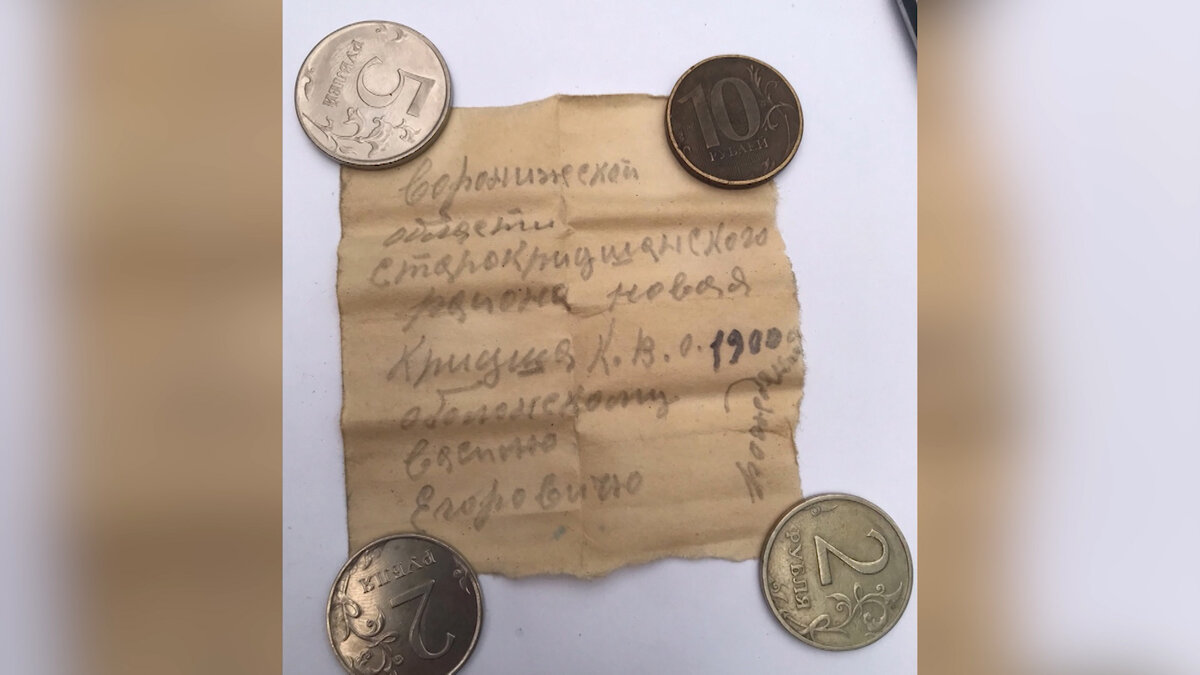 5
РУБЛЕЙ
10
РУБЛЕЙ
Воронижской
области
Старокридщанского
района новая
Кридща К.В.О. 1900
оболенскому
Васи
Егоровичю
2
РУБЛЯ
2
РУБЛЯ